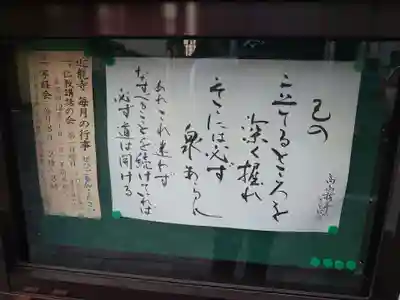 己の
立てるところを
深く掘れ
そこには必ず
泉あらん
高山樗牛
あれこれ迷わず
なすべきことを続けていれば
必ず道は開ける
龍寺 毎月の行事
仏教講話の会
写経会